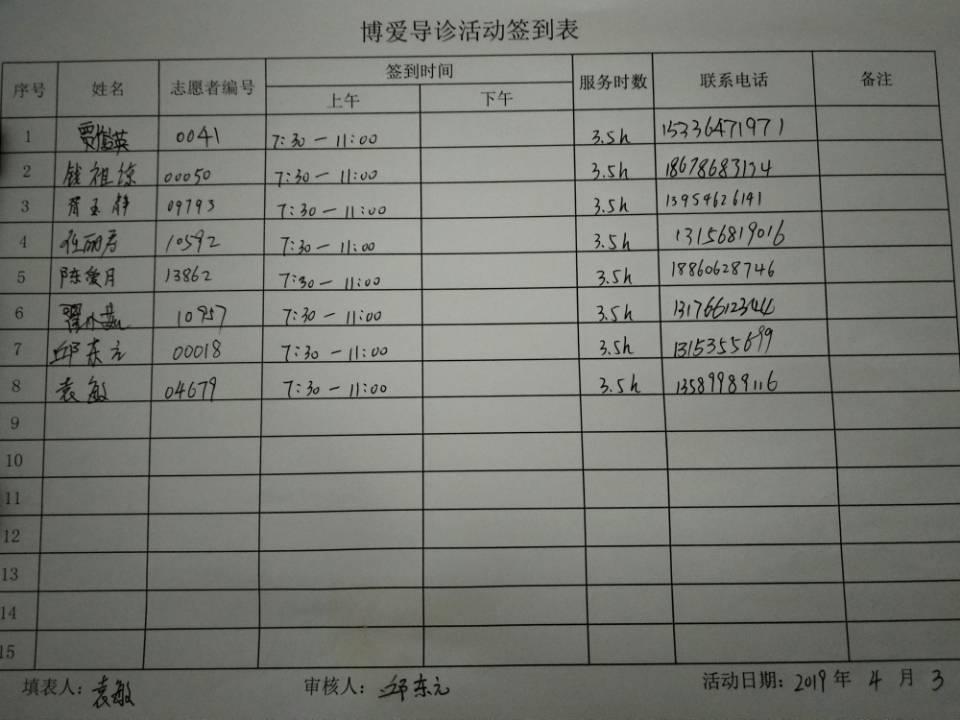 博爱导诊活动签到表
序号 姓名 志愿者编号 签到时间 服务时数 联系电话 备注
上午 下午
1 贾俊英 0041 7:30—11:00 3.5h 15336471971
2 钱祖琼 00050 7:30—11:00 3.5h
3 胥玉静 09793 7:30—11:00 3.5h 13954626141
4 任丽君 10592 7:30—11:00 3.5h 13156819016
5 陈爱月 13862 7:30—11:00 3.5h 18860628746
6 10957 7:30—11:00 3.5h 13176612344
7 邱东元 00018 7:30—11:00 3.5h 13153555699
8 袁敏 04679 7:30—11:00 3.5h 13589989116
9
10
11
12
13
14
15
填表人：袁敏 审核人：邱东元 活动日期：2019年 4 月 3